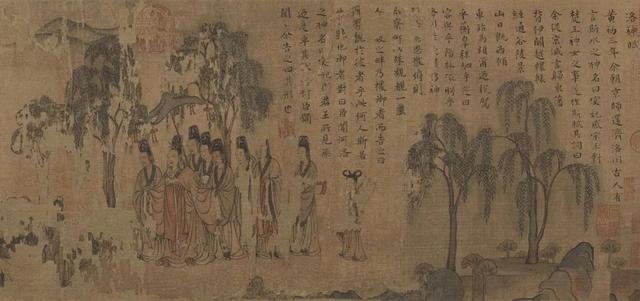 洛神賦
黃初三年余朝京師還濟洛川古人有
言斯水之神名曰宓妃感宋玉對
楚王神女之事遂作斯賦其詞曰
余從京域言歸東藩
背伊闕越轘轅
經通谷陵景
山日既西傾
車殆馬煩爾迺稅駕
乎蘅皋秣駟乎芝田
容與乎陽林流眄乎
神
思散俯則
察仰以殊觀覩一麗
人之畔乃援御者而告之曰
爾有覿於彼者乎此何人斯若
此之艷也御者對曰臣聞河洛
之神名曰宓妃則君王所見無
迺是乎其狀若何臣願
聞之余告之曰其形也